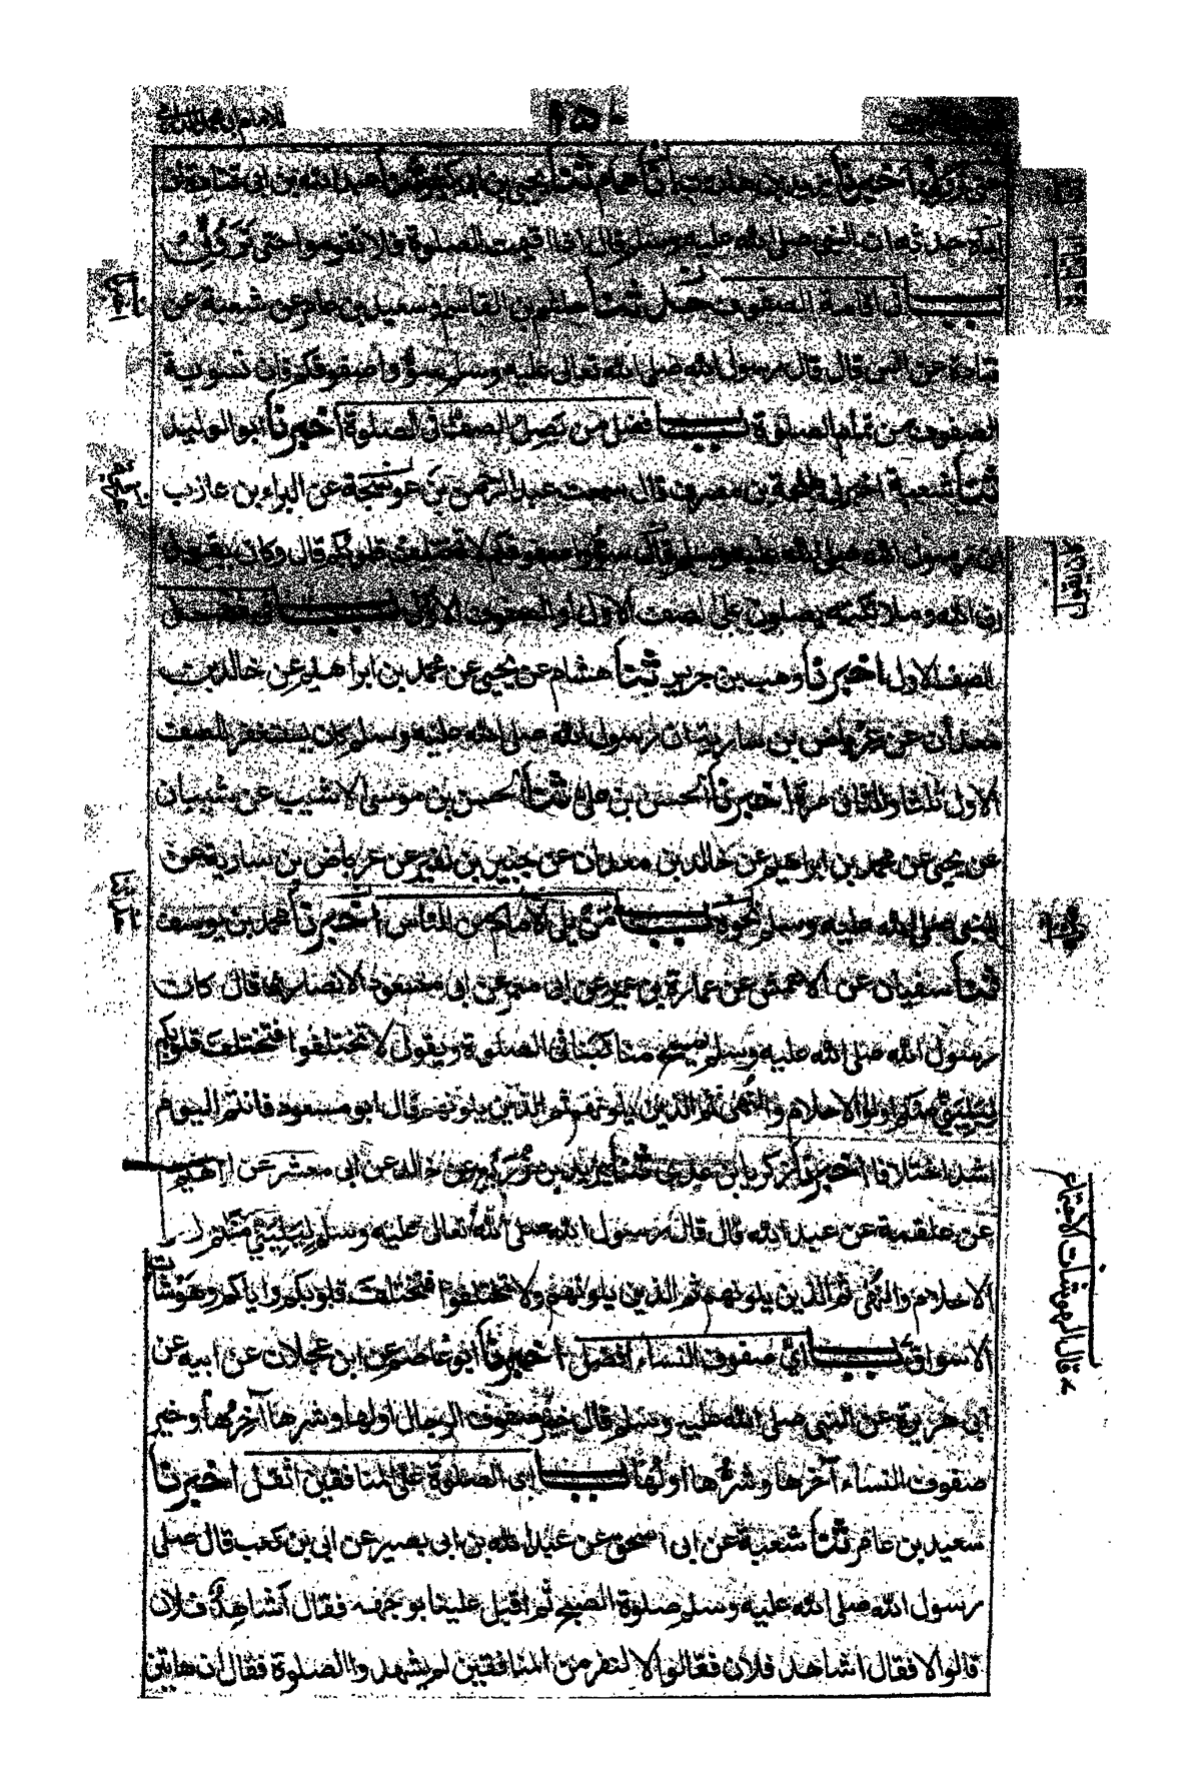 ١٥٠
حتى تروني اخبرنا يزيد بن هارون انا همام ثنا يحيى بن ابي كثير عن عبد الله بن ابي قتادة ان
اباه حدثه ان النبي صلى الله عليه وسلم قال اذا اقيمت الصلوة فلا تقوموا حتى تروني
باب في اقامة الصفوف ثنا هاشم بن القاسم وسعيد بن عامر عن شعبة عن
قتادة عن انس قال قال رسول الله صلى الله تعالى عليه وسلم سووا صفوفكم فان تسوية
الصفوف من تمام الصلوة باب فضل من يصل الصف في الصلوة اخبرنا ابو الوليد
ثنا شعبة اخبرني طلحة بن مصرف قال سمعت عبد الرحمن بن عوسجة عن البراء بن عازب
ان رسول الله صلى الله عليه وسلم قال سووا صفوفكم لا تختلف قلوبكم قال وكان يقول
ان الله وملائكته يصلون على الصف الاول او الصفوف الاول باب في فضل
الصف الاول اخبرنا وهب بن جرير ثنا هشام عن يحيى عن محمد بن ابراهيم عن خالد بن
معدان عن عرباض بن سارية ان رسول الله صلى الله عليه وسلم كان يستغفر للصف
الاول ثلثا وللثاني مرة اخبرنا الحسن بن علي ثنا الحسن بن موسى الاشيب عن شيبان
عن يحيى عن محمد بن ابراهيم عن خالد بن معدان عن جبير بن نفير عن عرباض بن سارية عن
النبي صلى الله عليه وسلم نحوه باب من يلي الامام من الناس اخبرنا محمد بن يوسف
ثنا سفيان عن الاعمش عن عمارة بن عمير عن ابي معمر عن ابي مسعود الانصاري قال كان
رسول الله صلى الله عليه وسلم يمسح مناكبنا في الصلوة ويقول لا تختلفوا فتختلف قلوبكم
ليليني منكم اولوا الاحلام والنهى ثم الذين يلونهم ثم الذين يلونهم قال ابو مسعود فانتم اليوم
اشد اختلافا اخبرنا زكريا بن عدي ثنا يزيد بن زريع عن خالد عن ابي معشر عن ابراهيم
عن علقمة عن عبد الله قال قال رسول الله صلى الله تعالى عليه وسلم ليليني منكم
الاحلام والنهى ثم الذين يلونهم ثم الذين يلونهم ولا تختلفوا فتختلف قلوبكم واياكم وهوشات
الاسواق باب اي صفوف النساء افضل اخبرنا ابو عاصم عن ابن عجلان عن ابيه عن
ابي هريرة عن النبي صلى الله عليه وسلم قال خير صفوف الرجال اولها وشرها آخرها وخير
صفوف النساء آخرها وشرها اولها باب اي الصلوة على المنافقين اثقل اخبرنا
سعيد بن عامر ثنا شعبة عن ابي اسحق عن عبد الله بن ابي بصير عن ابي بن كعب قال صلى
رسول الله صلى الله عليه وسلم صلوة الصبح ثم اقبل علينا بوجهه فقال اشاهد فلان
قالوا لا فقال اشاهد فلان فقالوا لا لنفر من المنافقين لم يشهدوا الصلوة فقال ان هاتين